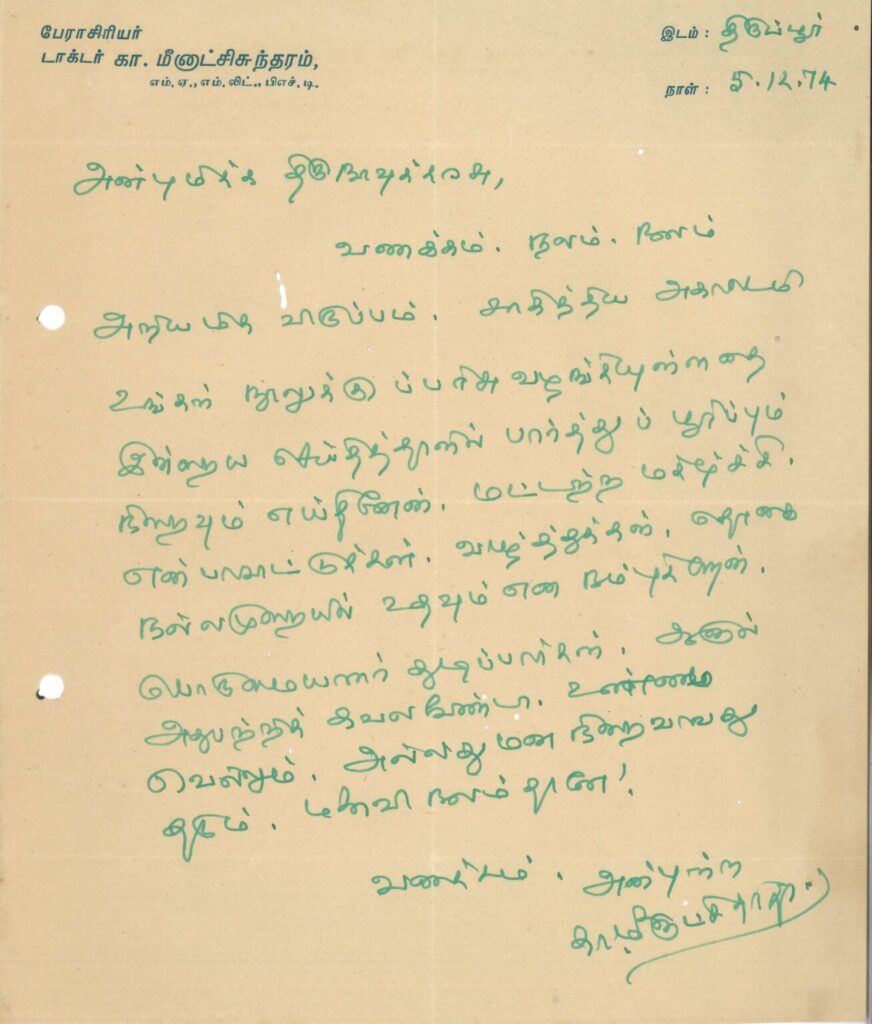 பேராசிரியர்
டாக்டர் கா. மீனாட்சிசுந்தரம்,
எம். ஏ., எம். லிட்., பிஎச். டி.
இடம் : திருப்பூர்
நாள் : 5.12.74
அன்புமிக்க திருநாவுக்கரசு,
வணக்கம். நலம். நலம்
அறிய மிக விருப்பம். சாகித்திய அகாடமி
உங்கள் நூலுக்குப்பரிசு வழங்கியுள்ளதை
இன்றைய செய்தித்தாளில் பார்த்துப் பூரிப்பும்
நிறைவும் எய்தினேன். மட்டற்ற மகிழ்ச்சி.
என் பாராட்டுக்கள். வாழ்த்துக்கள். தொகை
நல்லமுறையில் உதவும் என நம்புகிறேன்.
பொறாமையாளர் துடிப்பார்கள். ஆனால்
அதுபற்றிக் கவலை வேண்டா. உண்மை
வெல்லும். அல்லது மன நிறைவாவது
தரும். மனைவி நலம் தானே!
வணக்கம். அன்புற்ற
கா. மீனாட்சிசுந்தரம்